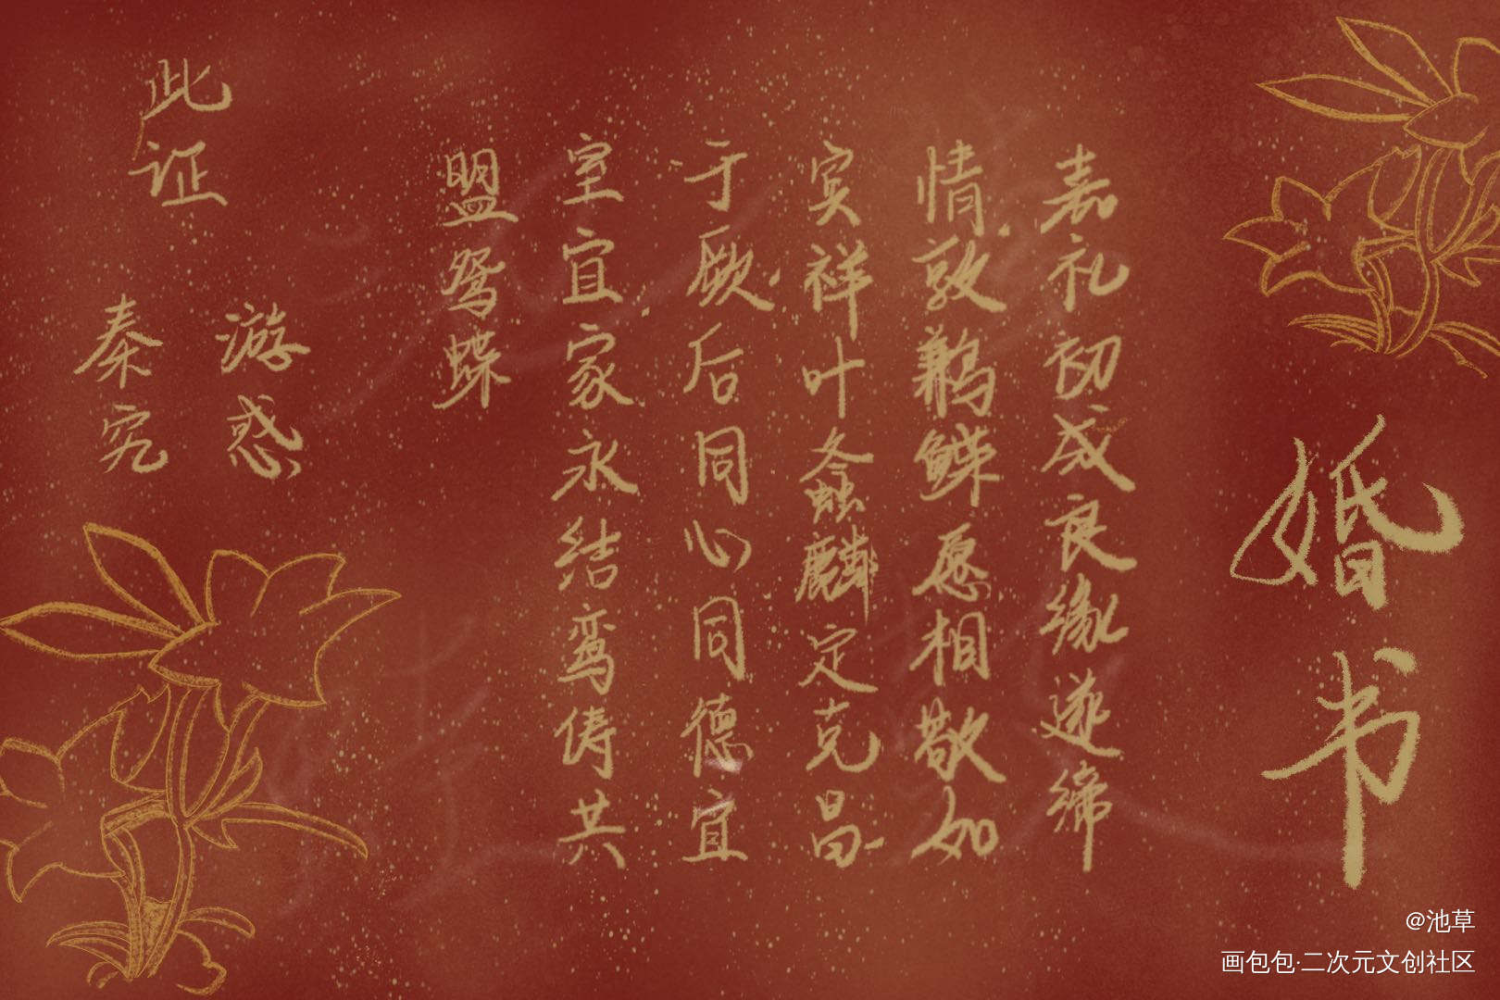 婚书
嘉礼初成良缘遂缔
情敦鹣鲽愿相敬如
宾祥叶螽麟定克昌
于厥后同心同德宜
室宜家永结鸾俦共
盟鸳蝶
此证
游惑
秦究
@池草
画包包·二次元文创社区